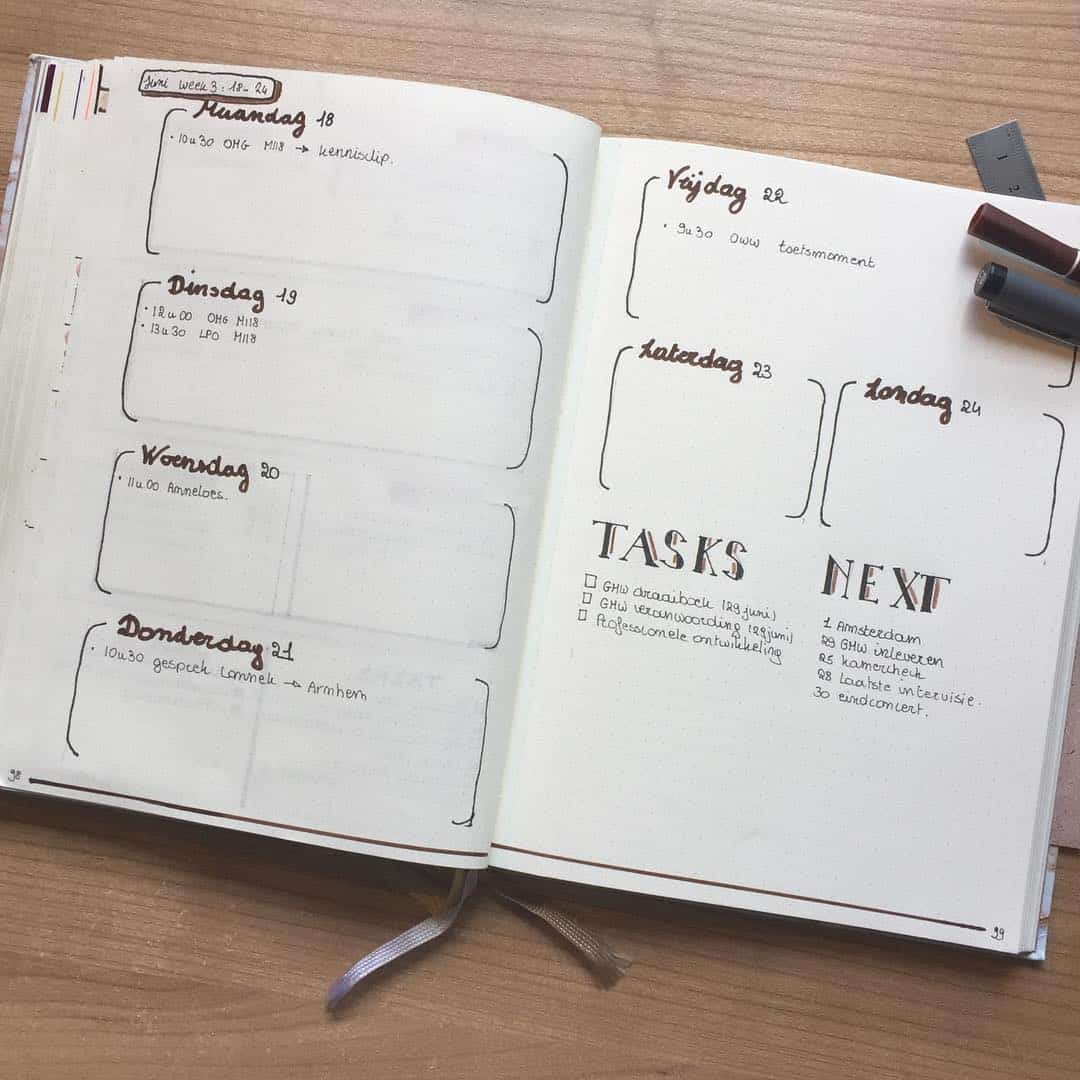 Juni week 3: 18-24
Maandag 18
• 10u30 OHG M118 → kennisclip.
Dinsdag 19
• 12u00 OHG M118
• 13u30 LPO M118
Woensdag 20
• 11u00 Anneloes.
Donderdag 21
• 10u30 gesprek Lonnek → Arnhem
98
Vrijdag 22
• 9u30 OWW toetsmoment
Zaterdag 23
Zondag 24
TASKS
☐ GHW draaiboek (29 juni)
☐ GHW veranwoording (29 juni)
☐ Professionele ontwikkeling
NEXT
1 Amsterdam
29 GHW inleveren
25 kamercheck
28 laatste intervisie.
30 eindconcert.
99
1
2